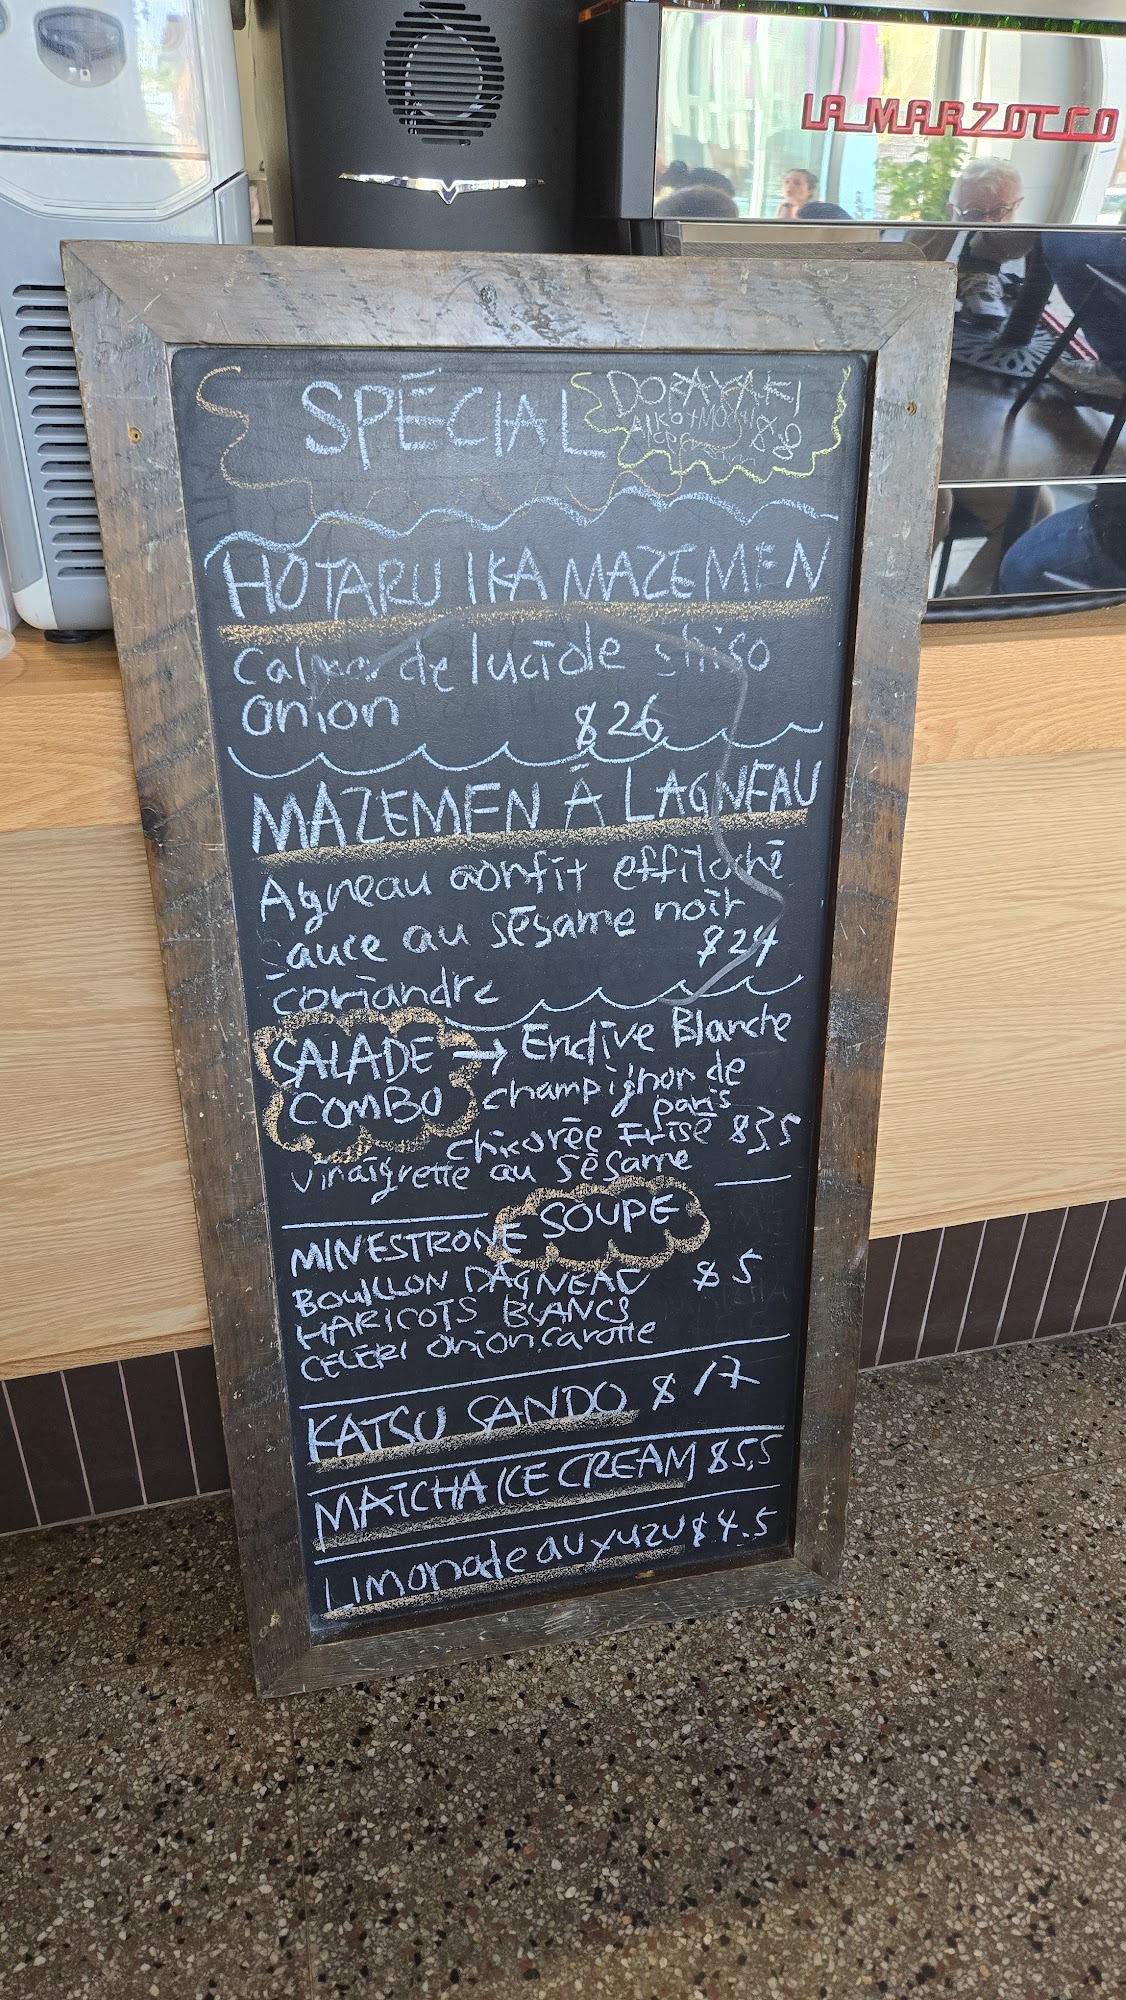 LA MARZOCCO
SPÉCIAL
DORAYAKI
$8
HOTARU IKA MAZEMEN
de luciole shiso
onion $26
MAZEMEN À LAGNEAU
Agneau confit effiloché
sauce au sésame noir
$24
coriandre
SALADE → Endive Blanche
COMBO champignon de
paris
chicorée Frisé $3,5
vinaigrette au sésame
SOUPE
MINESTRONE
BOUILLON DAGNEAU $5
HARICOTS BLANCS
CELERI onion, carotte
KATSU SANDO $17
MATCHA ICE CREAM $5,5
Limonade au yuzu $4.5